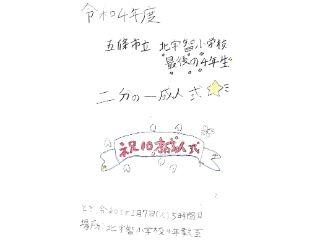 令和4年度
五條市立 北宇智小学校
最後の4年生
二分の一成人式
祝10才成人式
場所 北宇智小学校4年教室